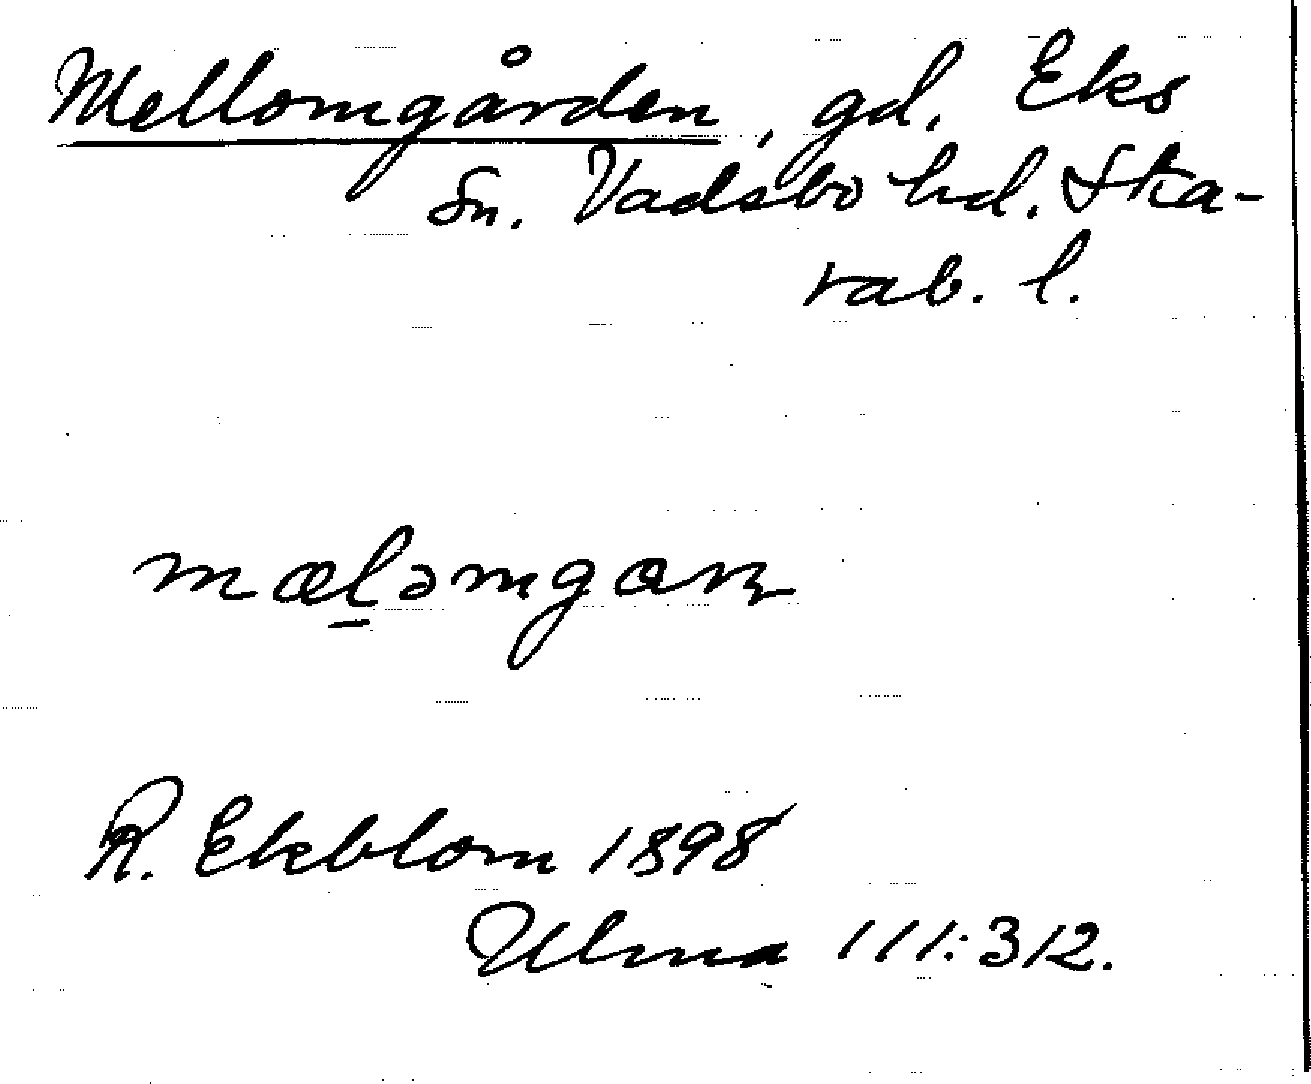 Mellomgården, gd. Eks
sn. Vadsbo hd. Ska-
rab. l.
mæləmgaɳ
R. Ekblom 1898
Ulma 111:312.